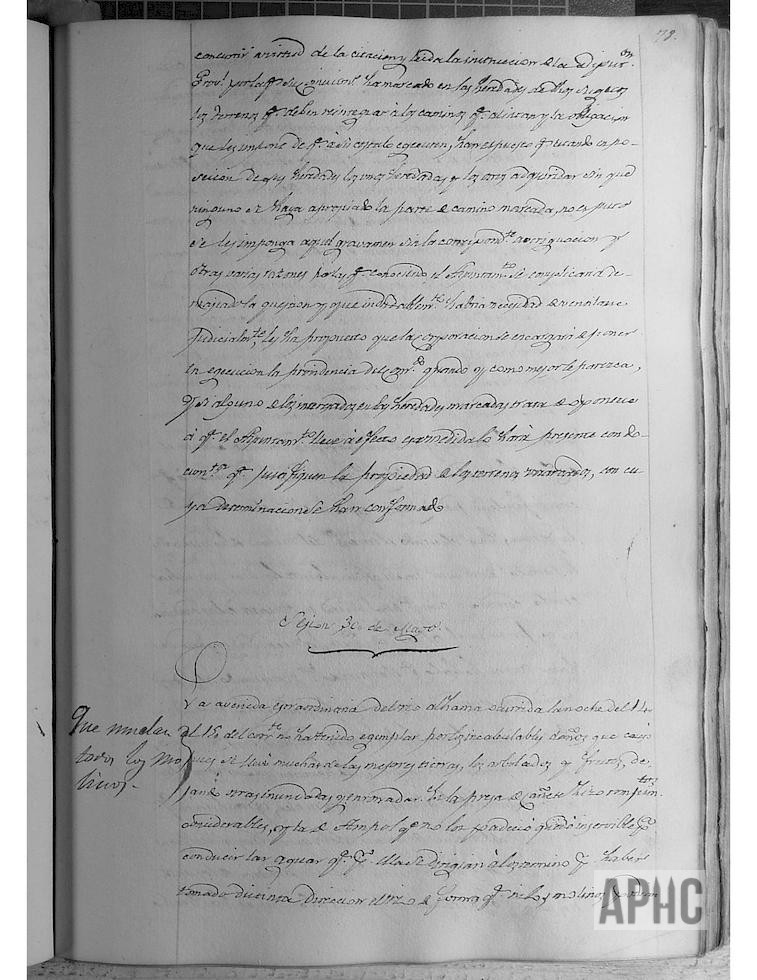 79.
concurrir a virtud de la citacion y leida la instruccion de la Diput.on
Prov.l por la q.e su comision.do ha marcado en las heredades de
los terrenos q.e deben reintegrar à los caminos q.e alindan y la obligacion
que les impone de q.e asi egecuten, han espuesto q.e estando en po-
sesion de sus heredades los unos heredadas y los otros adquiridas sin que
ninguno se haya apropiado la parte de camino marcada, no es justo
se les imponga aquel gravamen sin la correspond.te averiguacion y
otras varias razones por las q.e conociendo el Ayuntam.to se complicaria de-
masiado la question y que indudablem.te habria necesidad de ventilarse
Judicialm.te, les ha propuesto que la corporacion se encargara de poner
en egecucion la providencia del quando y como mejor le parezca,
y si alguno de los interesados en las heredades marcadas trata de oponerse
à q.e el Ayuntam.to lleve à efecto esa medida lo hará presente con do-
cum.tos q.e justifiquen la propiedad de los terrenos marcados, con cu-
ya determinacion se han conformado
Sesion 30 de Mayo.
La avenida extraordinaria del rio Alhama ocurrida la noche del 14
al 15 del corr.te no ha tenido egemplar por los incalculables daños que causó
pues se llevó muchas de las mejores tierras, los arbolados y frutos, de-
jando otras inundadas y enrronadas. En la presa de Cañete hizo rompim.tos
considerables, y la de Ampol q.e no los padeció quedó inservible p.a
conducir las aguas q.e p.r ella se dirigian à los termino p.r haber
tomado distinta direccion el rio de forma q.e ni los molinos
Que muelan
todos los mo-
linos.
APHC